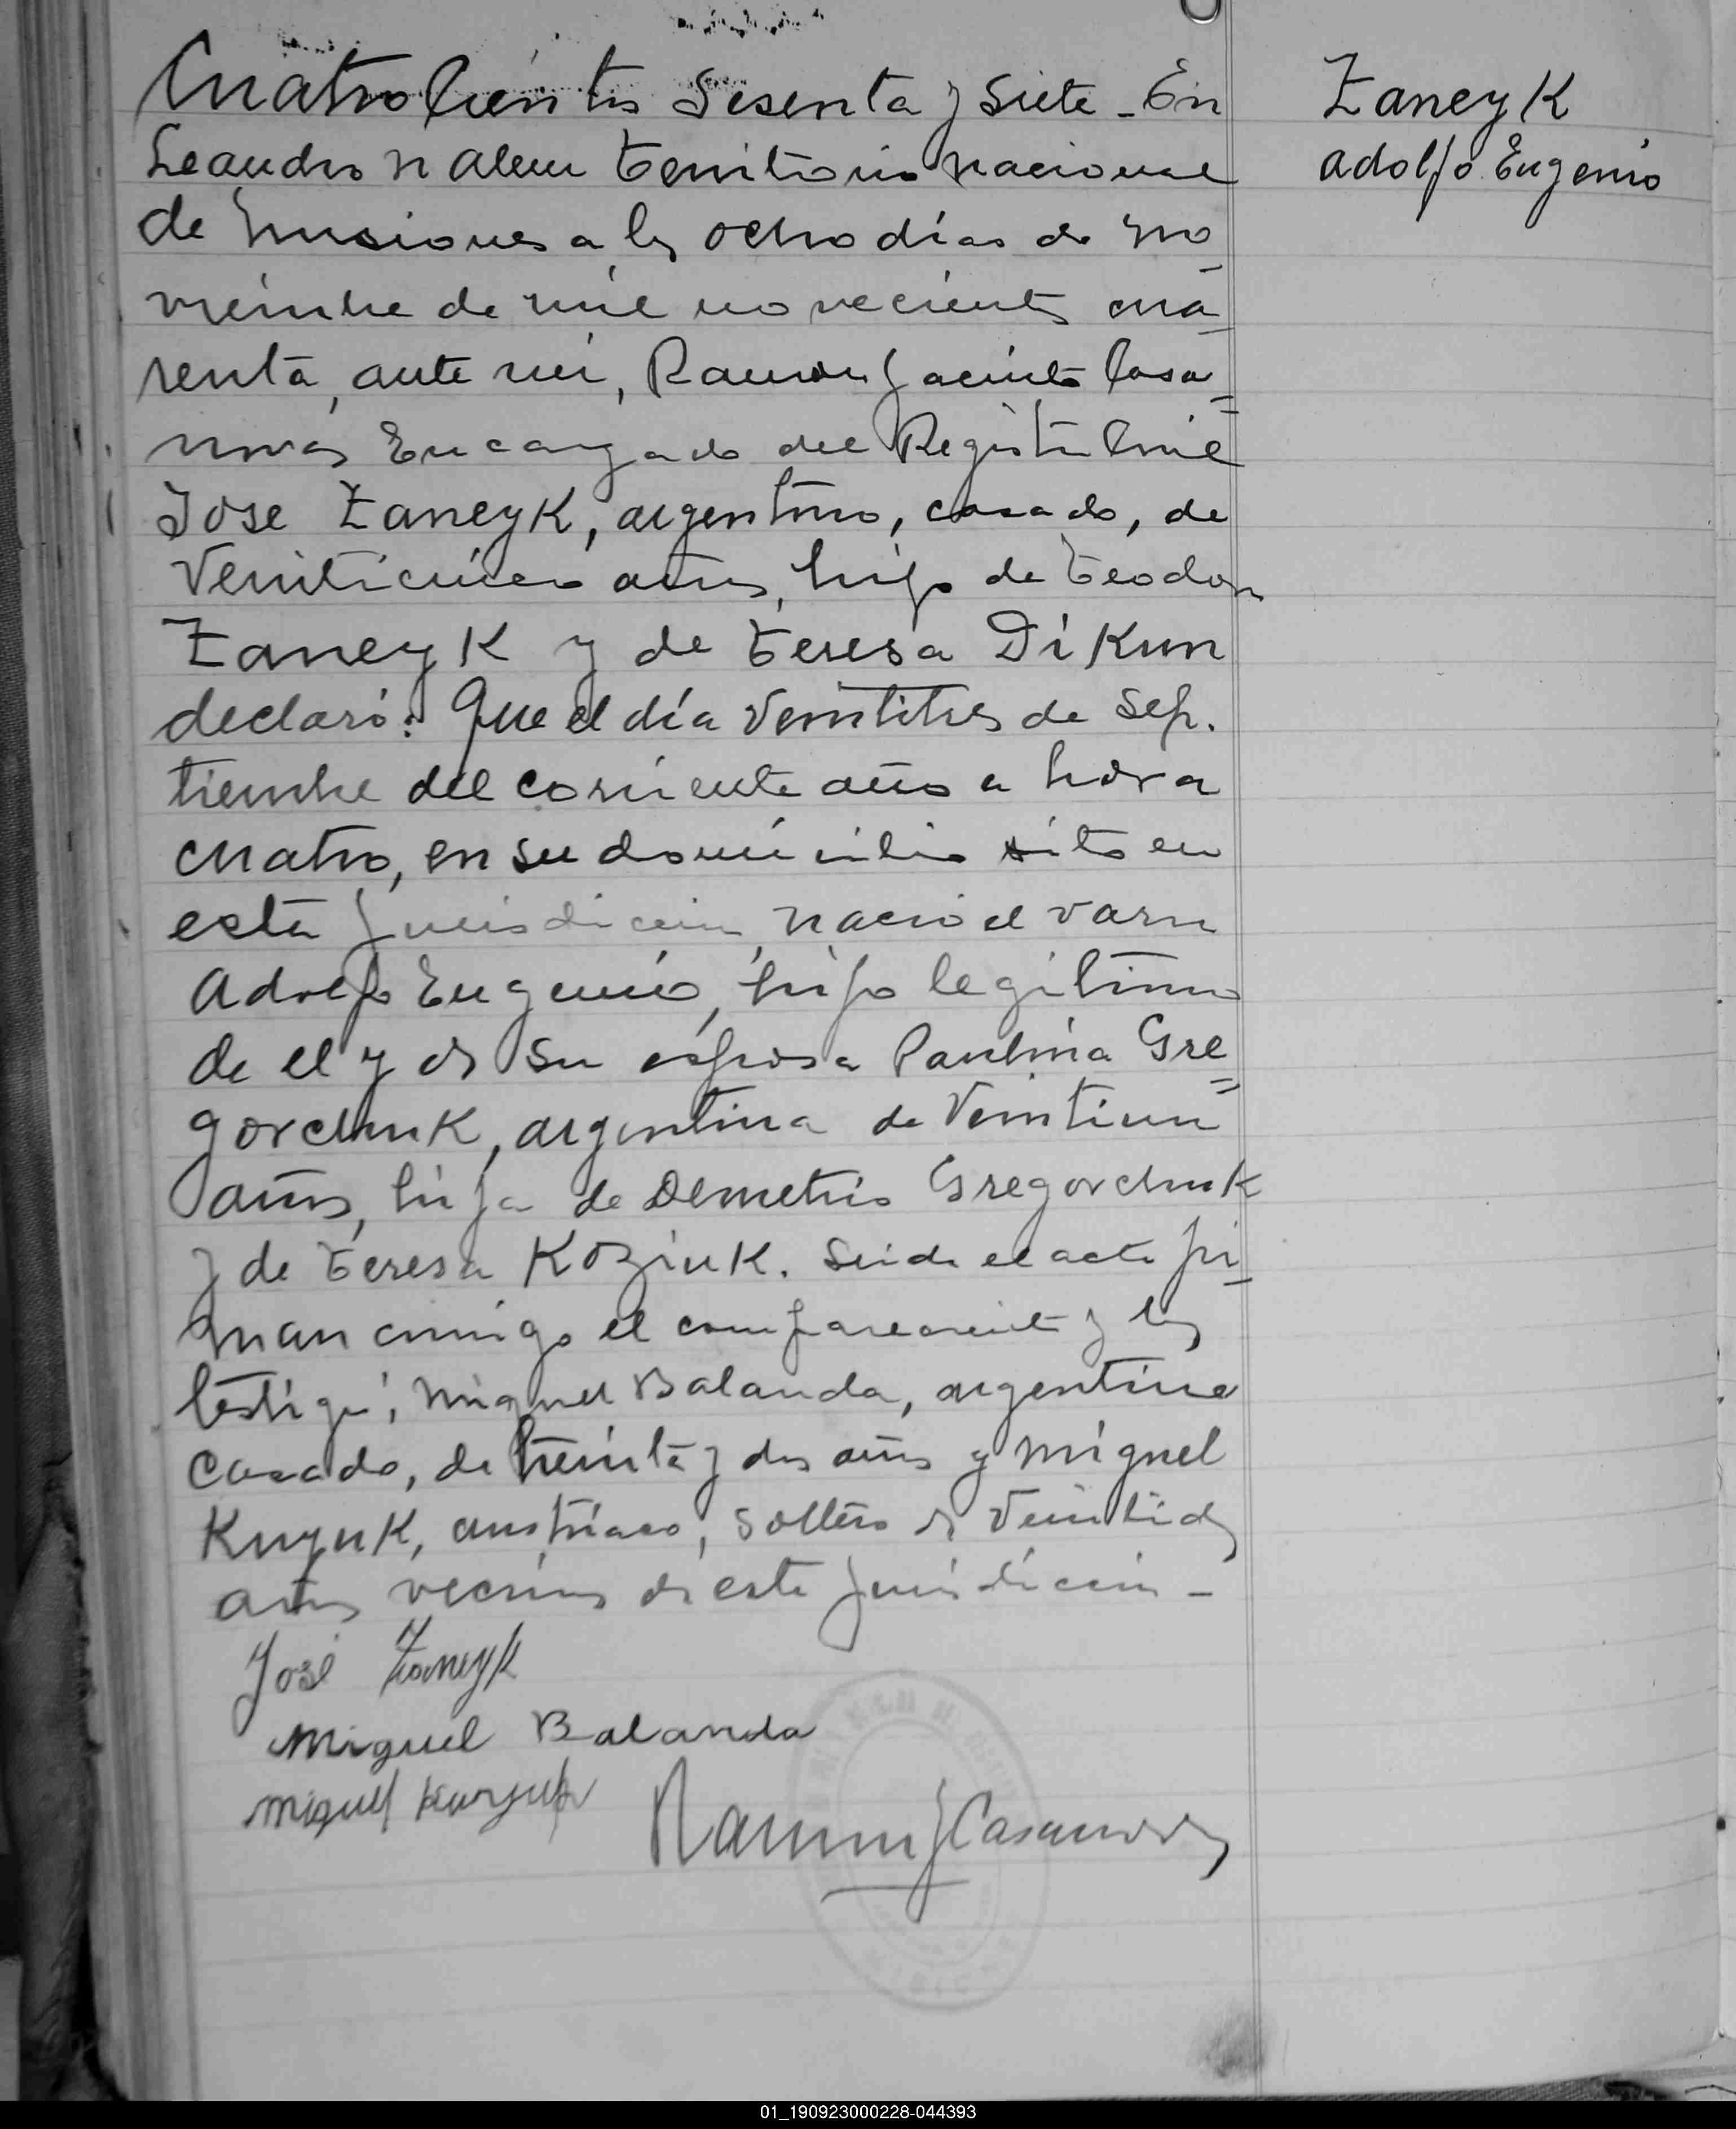 Cuatro Cientos Sesenta y Siete - En
Leandro N Alem Territorio Nacional
de Misiones a los ocho días de No
viembre de mil novecientos cua
renta, ante mi, Ramon Jacinto Casa
novas Encargado del Registro Civil
Jose ZaneyK, argentino, casado, de
Veinticinco años, hijo de Teodoro
ZaneyK y de Teresa DiKun
declaró: Que el día Veintitres de Sep.
tiembre del corriente año a hora
cuatro, en su domicilio sito en
esta Jurisdiccion, nacio el varon
Adolfo Eugenio, hijo legitimo
de el y de su esposa Paulina Gre
gorchuK, argentina de Veintiun
años, hija de Demetrio GregorchuK
y de Teresa KoziuK. Leida el acta fir
man conmigo el compareciente y los
testigos, Miguel Balanda, argentino
casado, de treinta y dos años y Miguel
KuzuK, austriaco, soltero de Veintidos
años vecinos de esta Jurisdiccion -
José Zaneyk
Miguel Balanda
Miguel
Ramon J Casanovas
ZaneyK
Adolfo Eugenio
01_190923000228-044393